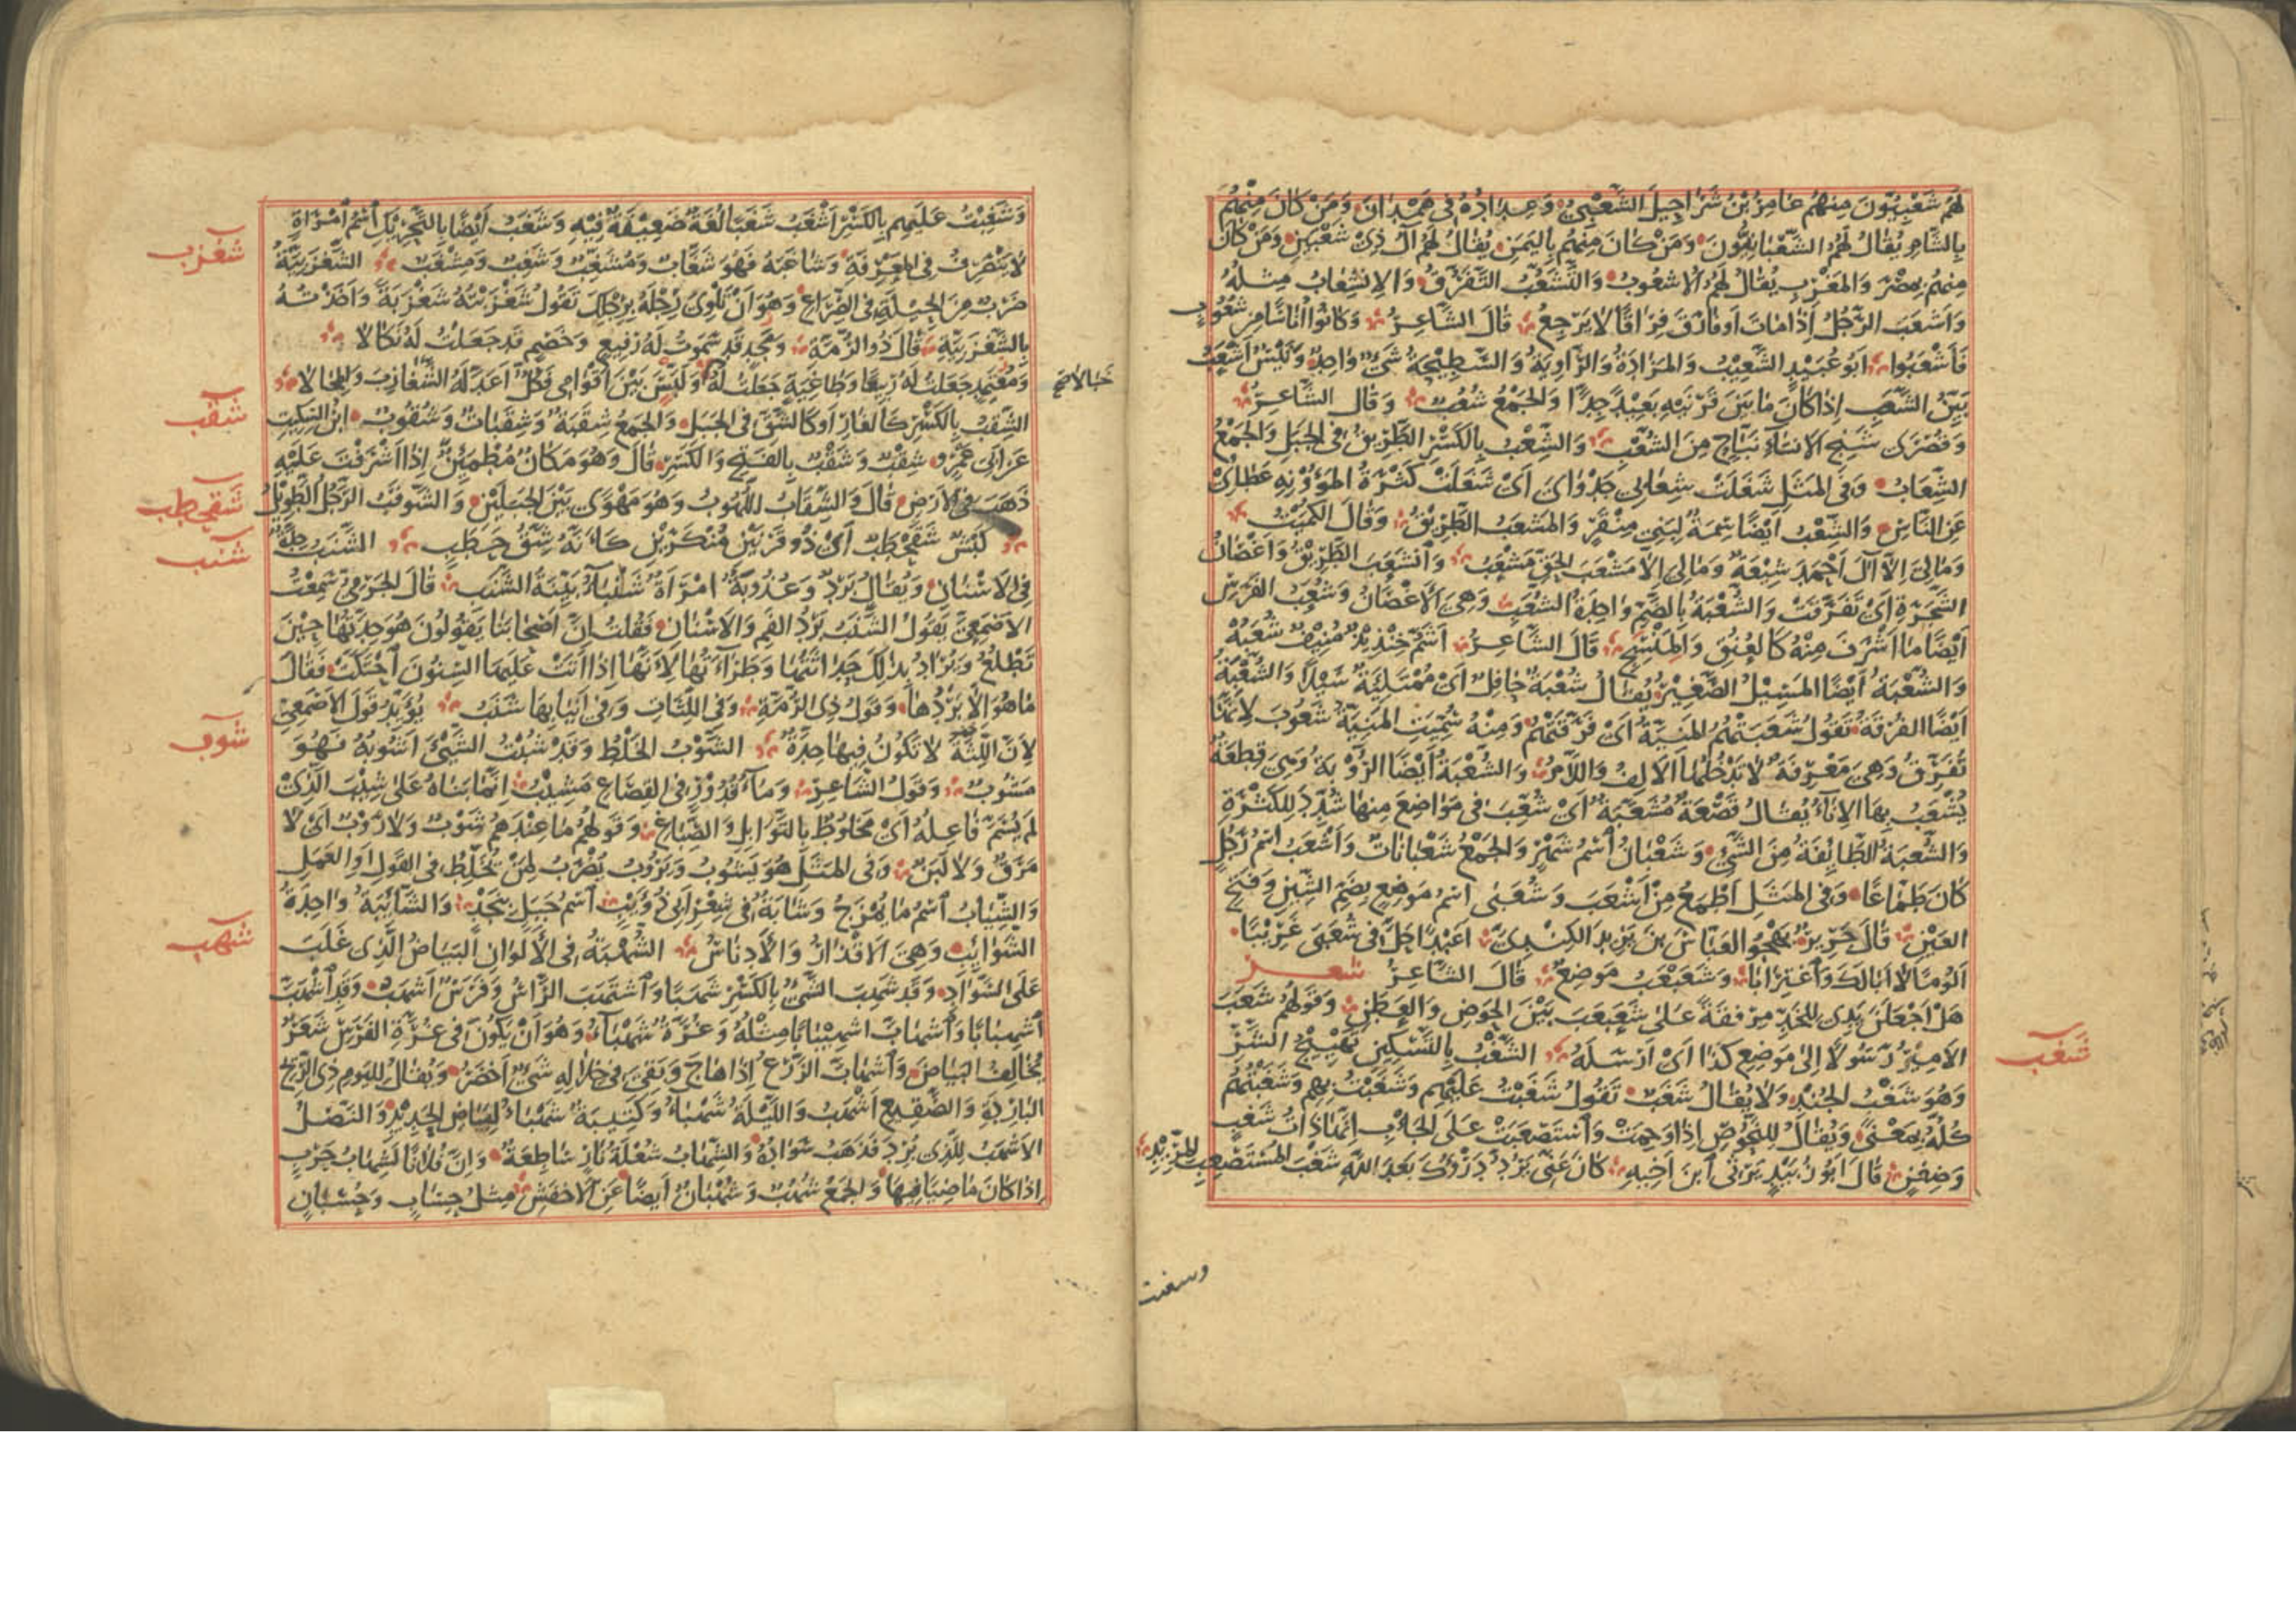 لهم شعبيون منهم عامر بن شراحيل الشعبي وعداده في همدان ومن كان منهم
بالشام يقال لهم الشعبانيون ومن كان منهم باليمن يقال لهم آل ذي شعبين ومن كان
منهم بمصر والمغرب يقال لهم الاشعوب والتشعب التفرق والانشعاب مثله
واشعب الرجل اذا مات او فارق فراقا لا يرجع قال الشاعر وكانوا اناسا من شعوب
فاشعبوا ابو عبيد الشعيب والمزادة والراوية والسطيحة شيء واحد وتيس اشعب
بين الشعب اذا كان ما بين قرنيه بعيد جدا والجمع شعب وقال الشاعر
وقصرى شنج الانساء نباج من الشعب والشعب بالكسر الطريق في الجبل والجمع
الشعاب وفي المثل شغلت شعابي جدواى اى شغلت كثرة المؤونة عطائي
عن الناس والشعب ايضا سمة لبني منقر والمشعب الطريق وقال الكميت
ومالي الا آل احمد شيعة ومالي الا مشعب الحق مشعب وانشعب الطريق واغصان
الشجرة اي تفرقت والشعبة بالضم واحدة الشعب وهي الاغصان وشعب الفرس
ايضا ما اشرف منه كالعنق والمنسج قال الشاعر اشم خنذيذ منيف شعبه
والشعبة ايضا المسيل الصغير يقال شعبة حافل اى ممتلئة سيلا والشعبة
ايضا الفرقة تقول شعبتهم المنية اى فرقتهم ومنه سميت المنية شعوب لانها
تفرق وهي معرفة لا تدخلها الالف واللام والشعبة ايضا الرؤبة وهي قطعة
يشعب بها الاناء يقال قصعة مشعبة اى شعبت في مواضع منها شدد للكثرة
والشعبة الطايفة من الشيء وشعبان اسم شهر والجمع شعبانات واشعب اسم رجل
كان طماعا وفي المثل اطمع من اشعب وشعبى اسم موضع بضم الشين وفتح
العين قال جرير يهجو العباس بن يزيد الكندي اعبدا حل في شعبى غريبا
الؤما لا ابالك واغترابا وشعبعب موضع قال الشاعر شعر
هل اجعلن يدي للخد مرفقة على شعبعب بين الحوض والعطن وقولهم شعب
الامير رسولا الى موضع كذا اى ارسله الشغب بالتسكين تهييج الشر
شغب
وهو شغب الجند ولا يقال شغب تقول شغبت عليهم وشغبت بهم وشغبتهم
كله بمعنى ويقال للنحوص اذا وحمت واستصعبت على الجأب انها ذات شغب
وضغن قال ابو زبيد يرثي ابن اخيه كان عني يرد درؤك بعد الله شغب المستصعب المريد
وشغبت
وشغبت عليهم بالكسر اشغب شغبا لغة ضعيفة فيه وشغب ايضا بالتحريك اسم امراة
لا ينصرف في المعرفة وشاغبه فهو شغاب ومشغب وشغب ومشغب الشغزبية
شغزب
ضرب من الحيلة في الصراع وهو ان تلوى رجله برجلك تقول شغزبته شغزبة واخذته
بالشغزبية قال ذو الرمة ومجد قد سموت له رفيع وخصم قد جعلت له نكالا
ومعتمد جعلت له ربيعا وطاغية جعلت له ولبس بين اقوامي فكل اعد له الشغازب والمحالا
خبالا صح
الشقب بالكسر كالغار او كالشق في الجبل والجمع شقبة وشقبات وشقوب ابن السكيت
شقب
عن ابي عمرو شقب وشقب بالفتح والكسر قال وهو مكان مطمئن اذا اشرفت عليه
ذهب في الارض قال والشقاب اللهوب وهو مهوى بين الجبلين والشوقب الرجل الطويل
شقحطب
كبش شقحطب اى ذو قرنين منكرين كانه شق حطب الشنب حدة
شنب
في الاسنان ويقال برد وعذوبة امراة شنباء بينة الشنب قال الجرمي سمعت
الاصمعي يقول الشنب برد الفم والاسنان فقلت ان اصحابنا يقولون هو حدتها حين
تطلع ويراد بذلك حداثتها وطراءتها لانها اذا اتت عليها السنون احتكت فقال
ما هو الا بردها وقول ذي الرمة وفي اللثات وفي انيابها شنب يؤيد قول الاصمعي
لان اللثة لا تكون فيها حدة الشوب الخلط وقد شبت الشيء اشوبه فهو
شوب
مشوب وقول الشاعر وماء قدور في القصاع مشيب انما بناه على شيب الذي
لم يسم فاعله اى مخلوط بالتوابل والصباغ وقولهم ما عندهم شوب ولا روب اى لا
مرق ولا لبن وفي المثل هو يشوب ويروب يضرب لمن يخلط في القول او العمل
والشياب اسم ما يمزج وشابة في شعر ابي ذؤيب اسم جبل بنجد والشائبة واحدة
الشوائب وهي الاقذار والادناس الشهبة في الالوان البياض الذي غلب
شهب
على السواد وقد شهب الشيء بالكسر شهبا واشتهب الراس وفرس اشهب وقد اشهب
اشهبابا واشهاب اشهيبابا مثله وغرة شهباء وهو ان يكون في غرة الفرس شعر
يخالف البياض واشهاب الزرع اذا هاج وبقي في خلاله شيء اخضر ويقال لليوم ذي الريح
الباردة والصقيع اشهب والليلة شهباء وكتيبة شهباء لبياض الحديد والنصل
الاشهب للذي برد فذهب سواده والشهاب شعلة نار ساطعة وان فلانا لشهاب حرب
اذا كان ماضيا فيها والجمع شهب وشهبان ايضا عن الاخفش مثل حساب وحسبان